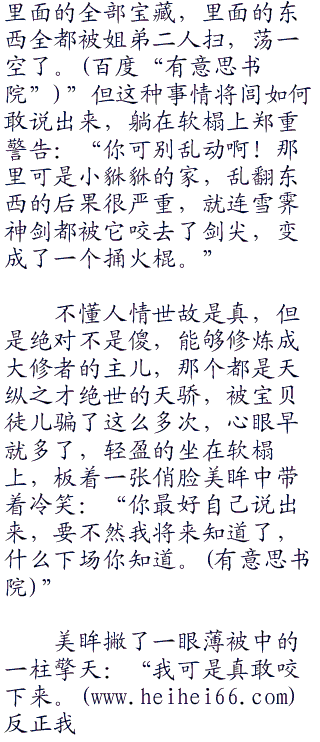 里面的全部宝藏，里面的东
西全都被姐弟二人扫，荡一
空了。(百度“有意思书
院”)”但这种事情将闾如何
敢说出来，躺在软榻上郑重
警告：“你可别乱动啊！那
里可是小貅貅的家，乱翻东
西的后果很严重，就连雪霁
神剑都被它咬去了剑尖，变
成了一个捅火棍。”
不懂人情世故是真，但
是绝对不是傻，能够修炼成
大修者的主儿，那个都是天
纵之才绝世的天骄，被宝贝
徒儿骗了这么多次，心眼早
就多了，轻盈的坐在软榻
上，板着一张俏脸美眸中带
着冷笑：“你最好自己说出
来，要不然我将来知道了，
什么下场你知道。(有意思书
院)”
美眸撇了一眼薄被中的
一柱擎天：“我可是真敢咬
下来。(www.heihei66.com)
反正我